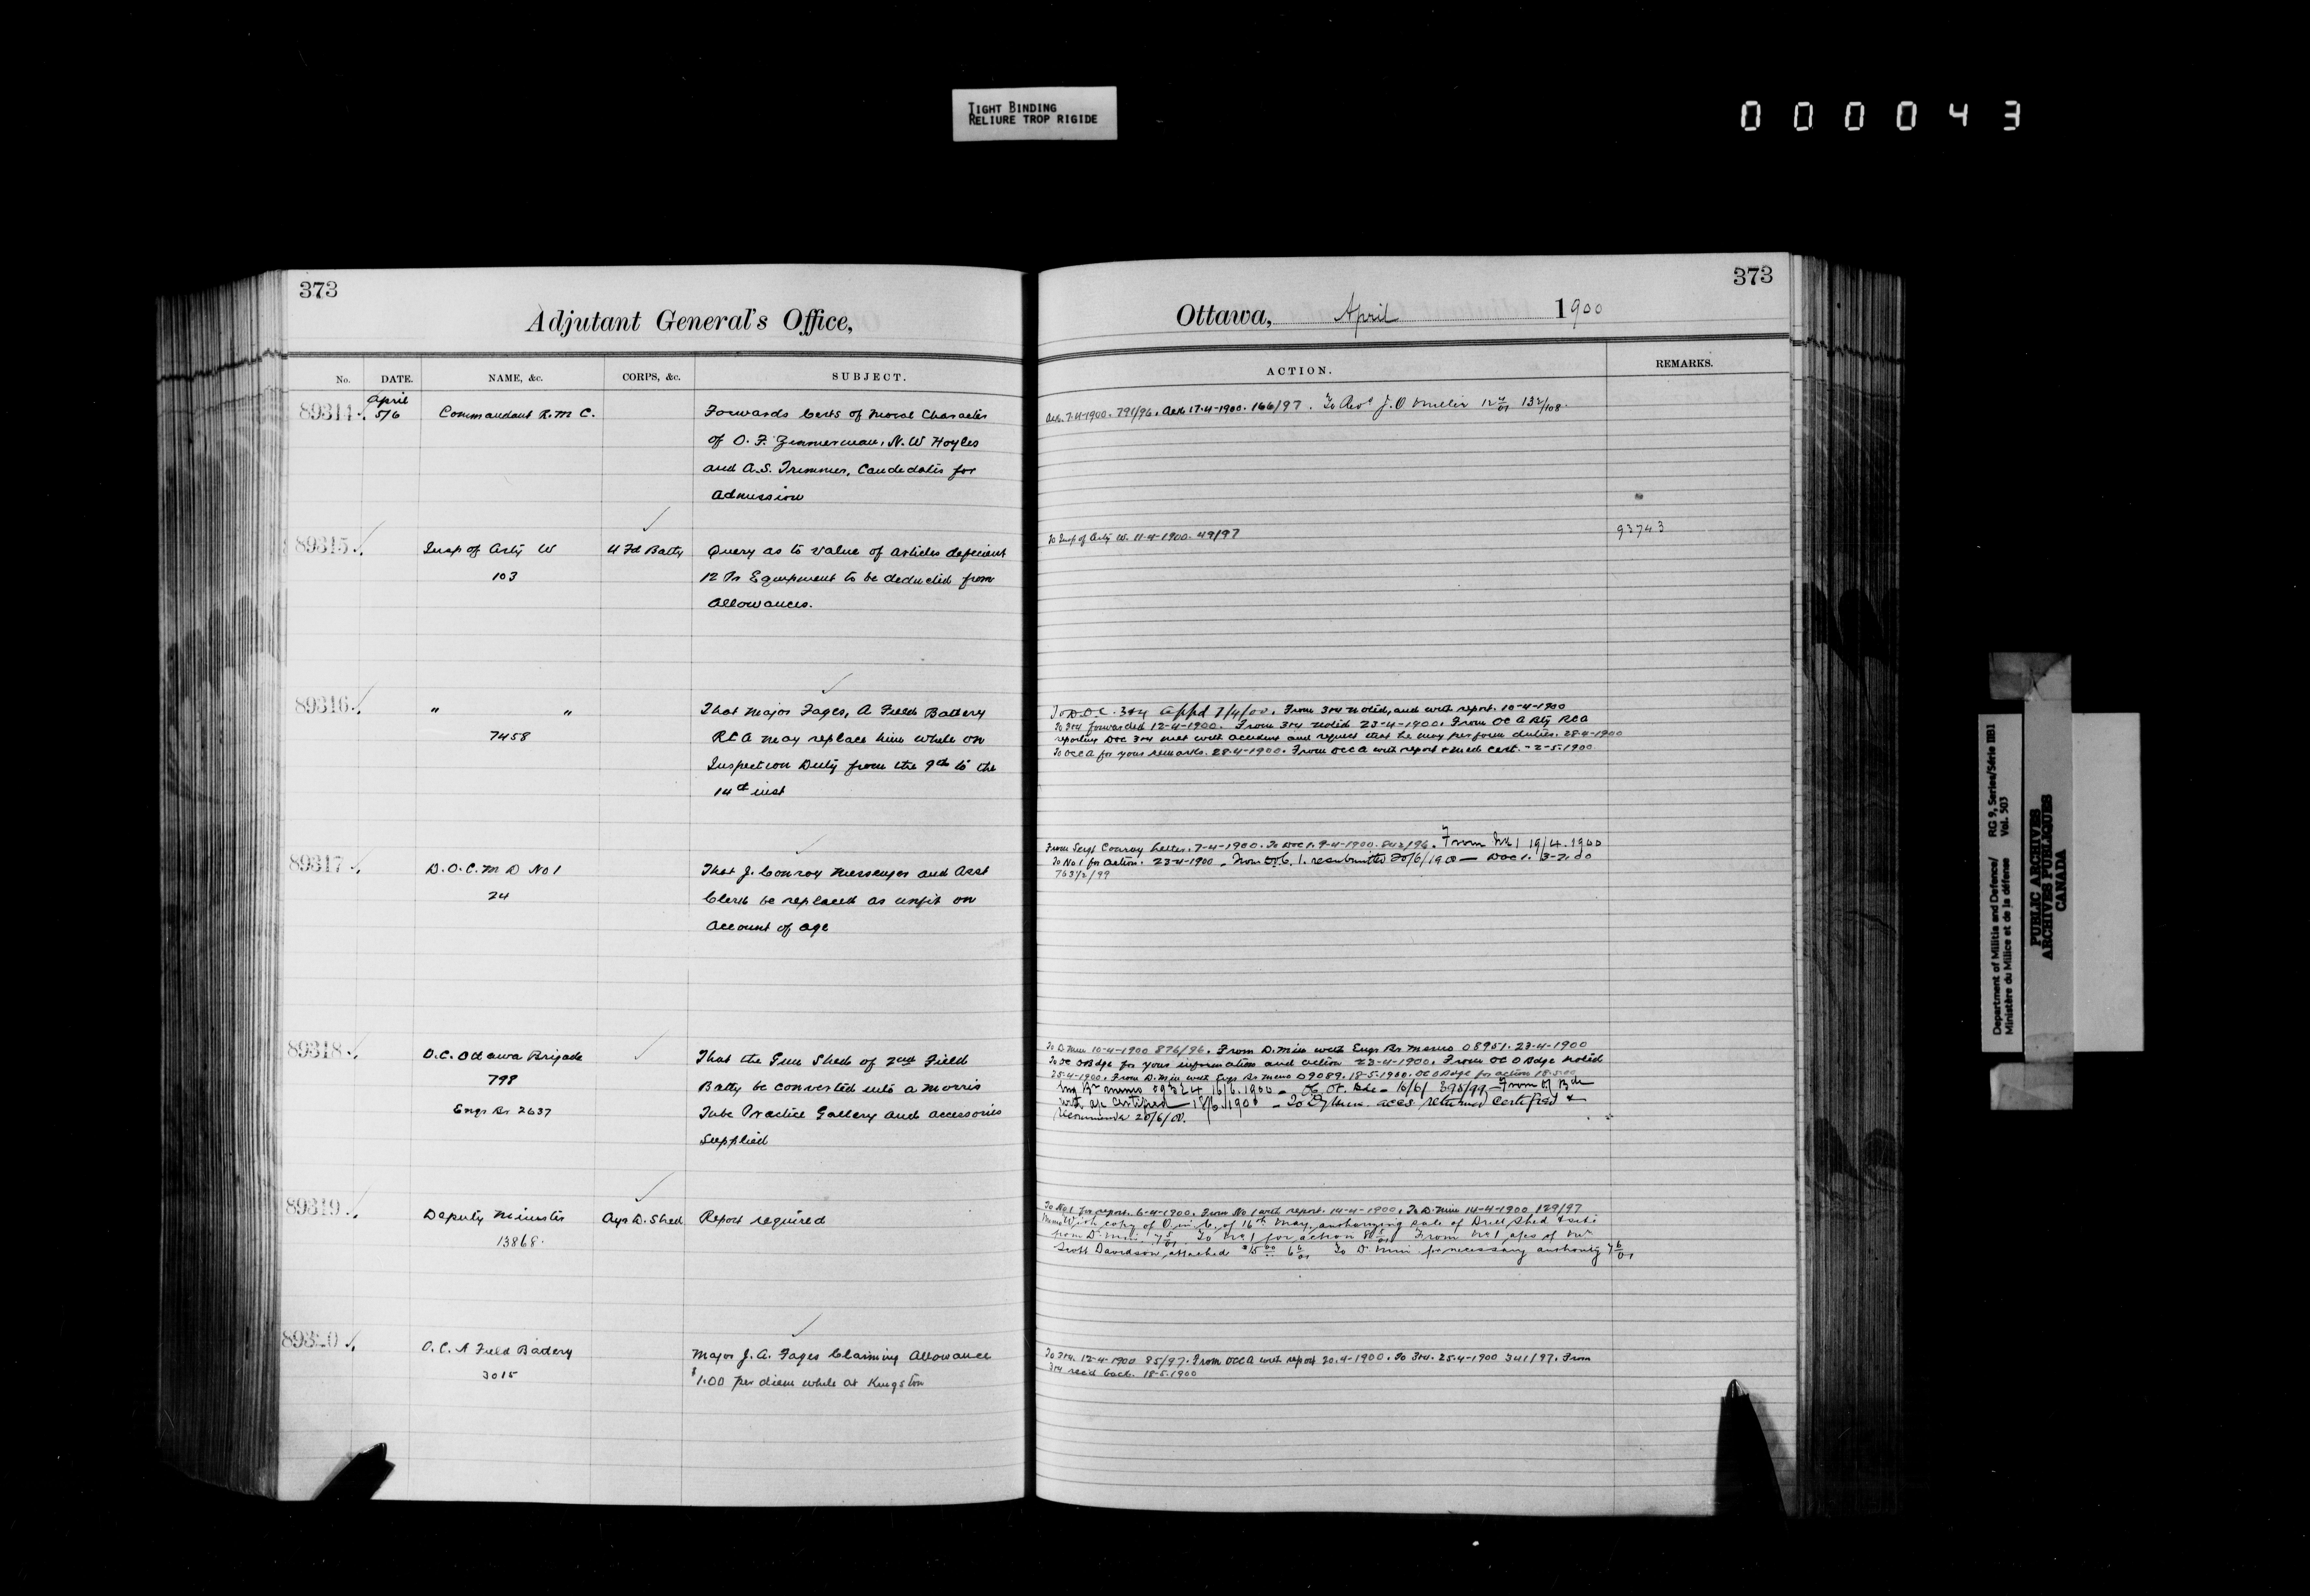 TIGHT BINDING
RELIURE TROP RIGIDE
000043
373
Adjutant General's Office,
No. DATE. NAME, &c. CORPS, &c. SUBJECT.
April
89314 5/6 Commandant R.M.C. Forwards Certs of Moral Character
of O. F. Zimmerman, N. W Hoyles
and A.S. Trimmer, Candidates for
Admission
89315 Insp of Arty W 4 Fd Batty Query as to value of articles deficient
103 12 Pr Equipment to be deducted from
Allowances.
89316 " " That Major Fages, A Field Battery
7458 RCA may replace him while on
Inspection Duty from the 9th to the
14th inst
89317 D.O.C. M D No 1 That J. Conroy Messenger and Asst
24 Clerk be replaced as unfit on
Account of age
89318 O.C. Ottawa Brigade That the Gun Shed of 2nd Field
798 Batty be converted into a Morris
Engr Br 2637 Tube Practice Gallery and accessories
Supplied
89319 Deputy Minister Ayr D. Shed Report required
13868.
89320 O.C. A Field Battery Major J. A. Fages Claiming Allowance
3015 $1.00 per diem while at Kingston
373
Ottawa, April 1900
ACTION. REMARKS.
Ack. 7-4-1900. 791/96. Ack 17-4-1900. 166/97. To Revd J. O Miller
93743
To Insp of Arty W. 11-4-1900. 49/97
To D.O.C. 3&4 appd 7/4/00. From 3&4 noted, and with report. 10-4-1900
To 3&4 forwarded 12-4-1900. From 3&4 noted 23-4-1900. From OC A Bty RCA
reporting DOC 3&4 met with accident and request that he may perform duties. 28-4-1900
To OCCA for your remarks. 28-4-1900. From OCCA with report & med. cert. - 2-5-1900
From Sergt Conroy Letter. 7-4-1900. To DOC 1. 9-4-1900. From No 1 19/4.1900
To No 1 for action. 23-4-1900 - From D.O.C. 1. resubmitted 20/6/1900 - DOC 1.
763/2/99
To D. Min 10-4-1900 876/96. From D. Min with Engr Br memo 08951. 23-4-1900
To OC OBdge for your information and action 23-4-1900. From OC O Bdge noted
25-4-1900. From D. Min with Engr Br memo 09089. 18-5-1900. OC O Bdge for action 18-5-00
Eng Br memo 16/6.1900 - From
with certified - 18/6/1900 - To Dy Min. accs returned certified &
recommended 20/6/00.
To No 1 for report. 6-4-1900. From No 1 with report. 14-4-1900. To D. Min 14-4-1900 129/97
Memo With copy of O. in C. of 16th May, authorizing sale of Drill Shed & site
from D. Min. To No 1 for action From No 1
Scott Davidson, attached To D. Min for necessary authority
To 3&4. 12-4-1900 85/97. From OCCA with report 20.4-1900. To 3&4. 25.4-1900 341/97. From
3&4 rec'd back. 18-5.1900
Department of Militia and Defence/
Ministère du Milice et de la défense
RG 9, Series/Série IIB1
Vol. 503
PUBLIC ARCHIVES
ARCHIVES PUBLIQUES
CANADA